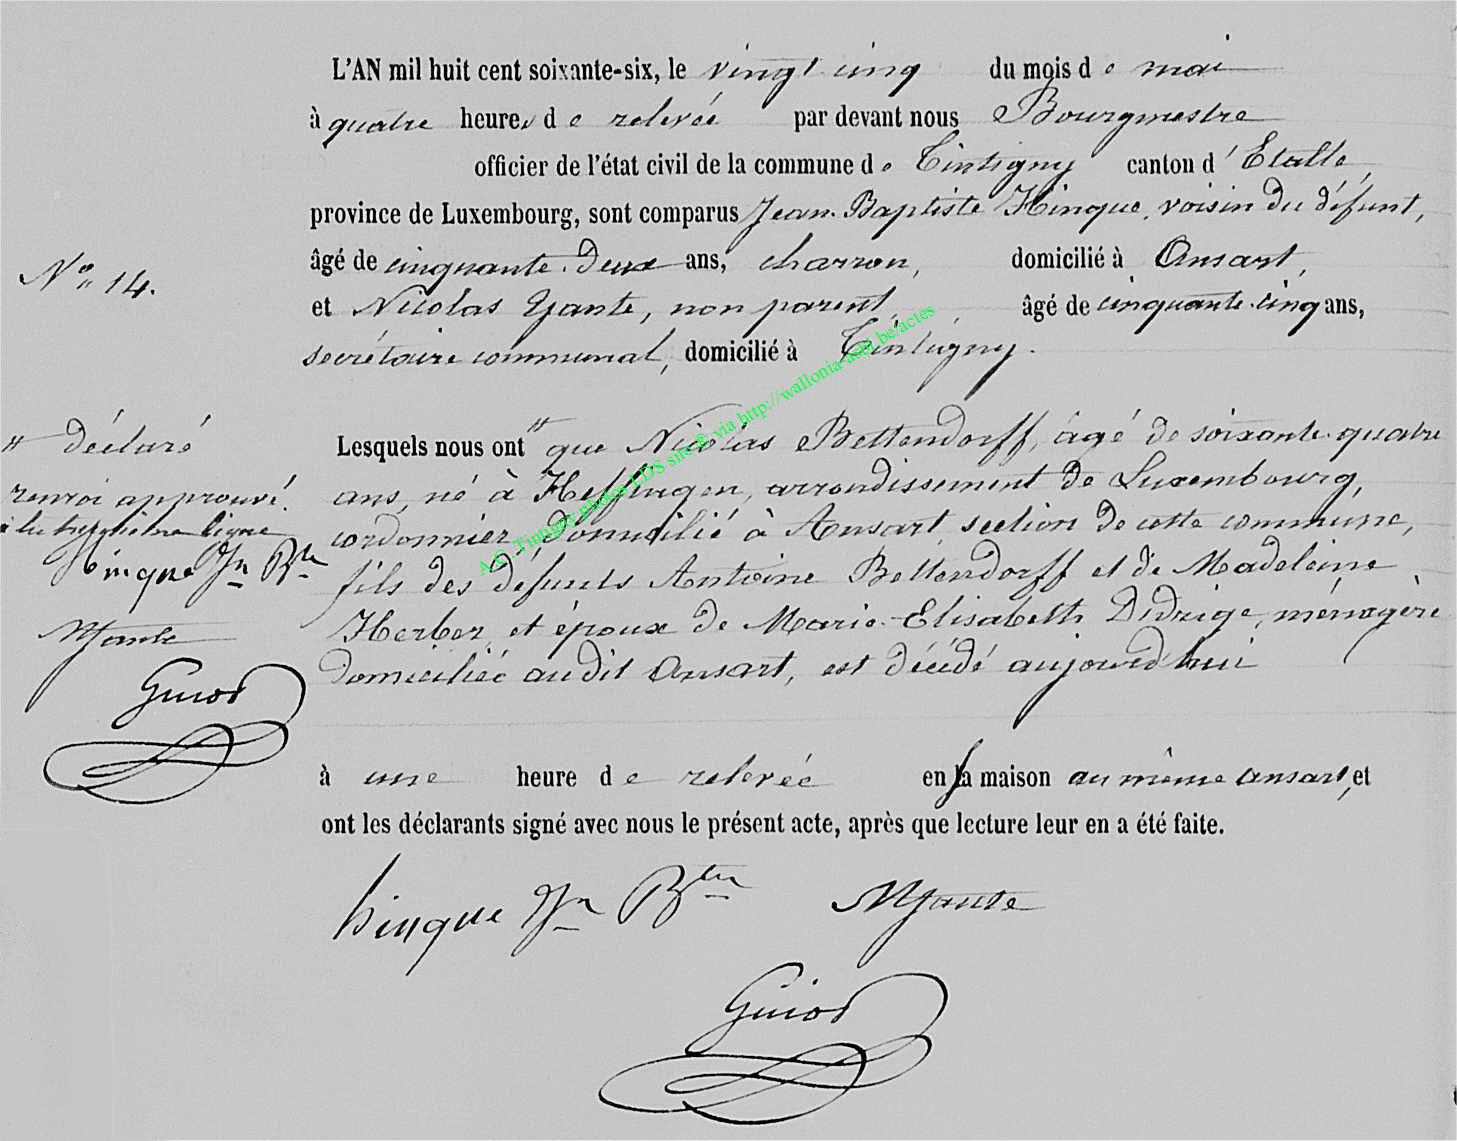 L'AN mil huit cent soixante-six, le vingt cinq du mois de mai
à quatre heures de relevée par devant nous Bourgmestre
officier de l'état civil de la commune de Tintigny canton d'Etalle,
province de Luxembourg, sont comparus Jean-Baptiste Hinque, voisin du défunt,
âgé de cinquante-deux ans, charron, domicilié à Ansart,
N° 14.
et Nicolas Yante, non parent, âgé de cinquante-cinq ans,
secrétaire communal, domicilié à Tintigny.
A.C. Tintigny photos LDS site® via http://wallonia-asbl.be/actes
Lesquels nous ont " que Nicolas Bettendorff, âgé de soixante-quatre
ans, né à Heffingen, arrondissement de Luxembourg,
cordonnier, domicilié à Ansart, section de cette commune,
fils des défunts Antoine Bettendorff et de Madeleine
Herber, et époux de Marie-Elisabeth Didrige, ménagère
domiciliée audit Ansart, est décédé aujourd'hui
" déclaré
renvoi approuvé.
à la septième ligne
hinque Jn Bte
NYante
Guiot
à une heure de relevée en la maison au même Ansart, et
ont les déclarants signé avec nous le présent acte, après que lecture leur en a été faite.
hinque Jn Bte NYante
Guiot